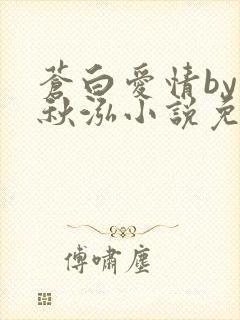 蒼白愛情by
秋泓小說免
傅嘯塵